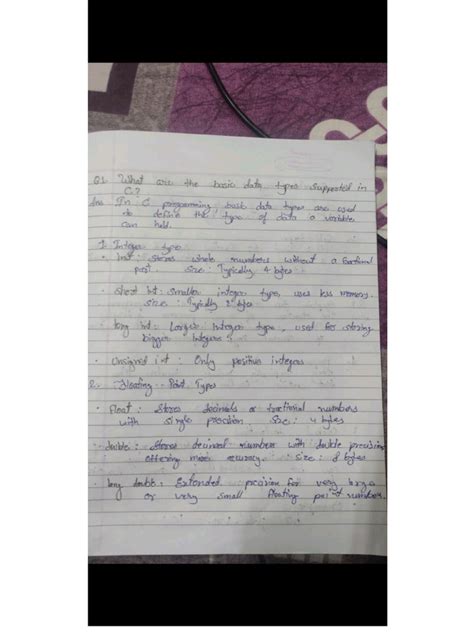 Q1. What are the basic data types supported in
C?
Ans In C programming basic data types are used
to define the type of data a variable
can hold.
1. Integer type
• Int : Stores whole numbers without a fractional
part. size : Typically 4 bytes
• Short Int : smaller integer type, uses less memory.
size : Typically 2 bytes
• long int : Larger integer type, used for storing
bigger integers
• Unsigned int : Only positive integers
2. Floating - Point Types
• Float : Stores decimals or fractional numbers
with single precision Size : 4 bytes
• double : Stores decimal numbers with double precision
offering more accuracy. size : 8 bytes
• long double : Extended precision for very large
or very small floating point numbers.